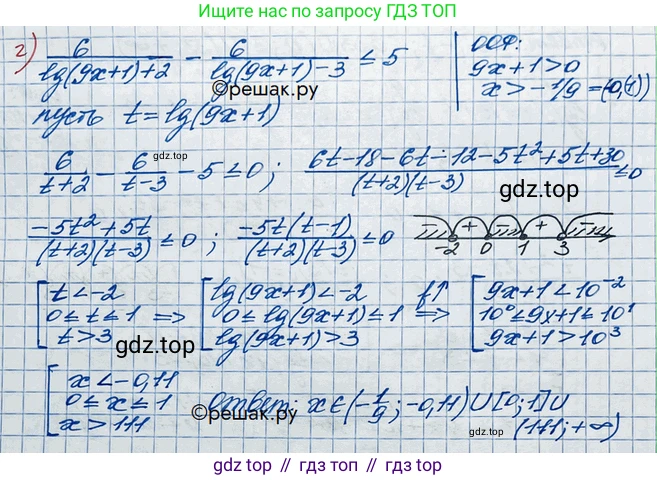 Ищите нас по запросу ГДЗ ТОП
г) 6/(lg(9x+1)+2) - 6/(lg(9x+1)-3) ≤ 5
ООФ:
9x+1>0
x>-1/9=(-0,(1))
©решак.ру
пусть t=lg(9x+1)
gdz.top
6/(t+2) - 6/(t-3) - 5≤0; (6t-18-6t-12-5t²+5t+30)/((t+2)(t-3)) ≤0
gdz.top
(-5t²+5t)/((t+2)(t-3)) ≤0; (-5t(t-1))/((t+2)(t-3)) ≤0
- + - + -
-2 0 1 3
[ t<-2
0≤t≤1
t>3
=> [ lg(9x+1)<-2
0≤lg(9x+1)≤1
lg(9x+1)>3
f↑
=> [ 9x+1<10⁻²
10⁰≤9x+1≤10¹
9x+1>10³
gdz.top
[ x<-0,11
0≤x≤1
x>111
Ответ: x∈(-1/9; -0,11)∪[0;1]∪
(111;+∞)
©решак.ру
gdz.top
gdz.top // гдз топ // гдз.top